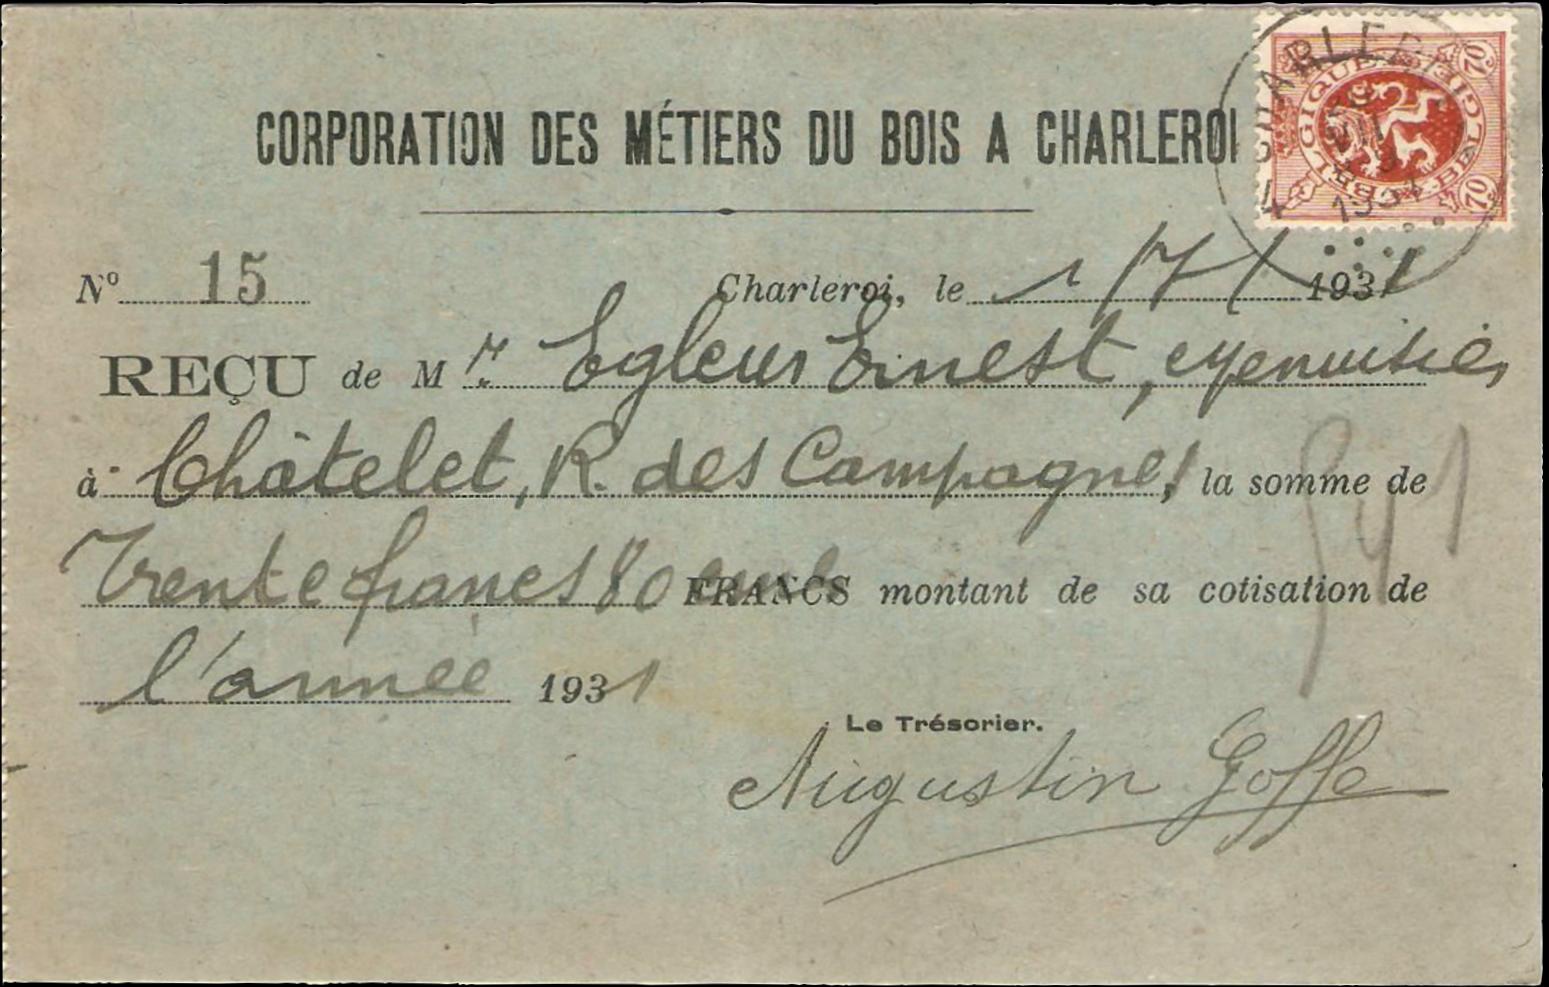 CORPORATION DES MÉTIERS DU BOIS A CHARLEROI
BELGIQUE BELGIË
70
70
CHARLEROI
1931
N° 15 Charleroi, le 1/7/ 1931
REÇU de Mr. Egleur Ernest, Menuisier
à Châtelet, R. des Campagnes, la somme de
Trente francs 80 FRANCS montant de sa cotisation de
l'année 1931
Le Trésorier.
Augustin Goffe